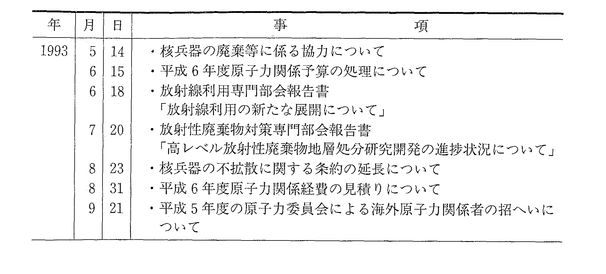 年 月 日 事 項
1993 5 14 ・核兵器の廃棄等に係る協力について
6 15 ・平成6年度原子力関係予算の処理について
6 18 ・放射線利用専門部会報告書
「放射線利用の新たな展開について」
7 20 ・放射性廃棄物対策専門部会報告書
「高レベル放射性廃棄物地層処分研究開発の進捗状況について」
8 23 ・核兵器の不拡散に関する条約の延長について
8 31 ・平成6年度原子力関係経費の見積りについて
9 21 ・平成5年度の原子力委員会による海外原子力関係者の招へいに
ついて